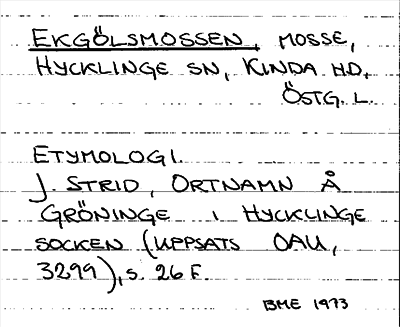 EKGÖLSMOSSEN, MOSSE,
HYCKLINGE SN, KINDA HD,
ÖSTG. L.
ETYMOLOGI.
J. STRID, ORTNAMN Å
GRÖNINGE I HYCKLINGE
SOCKEN (UPPSATS OAU,
3299), S. 26 F.
BME 1973